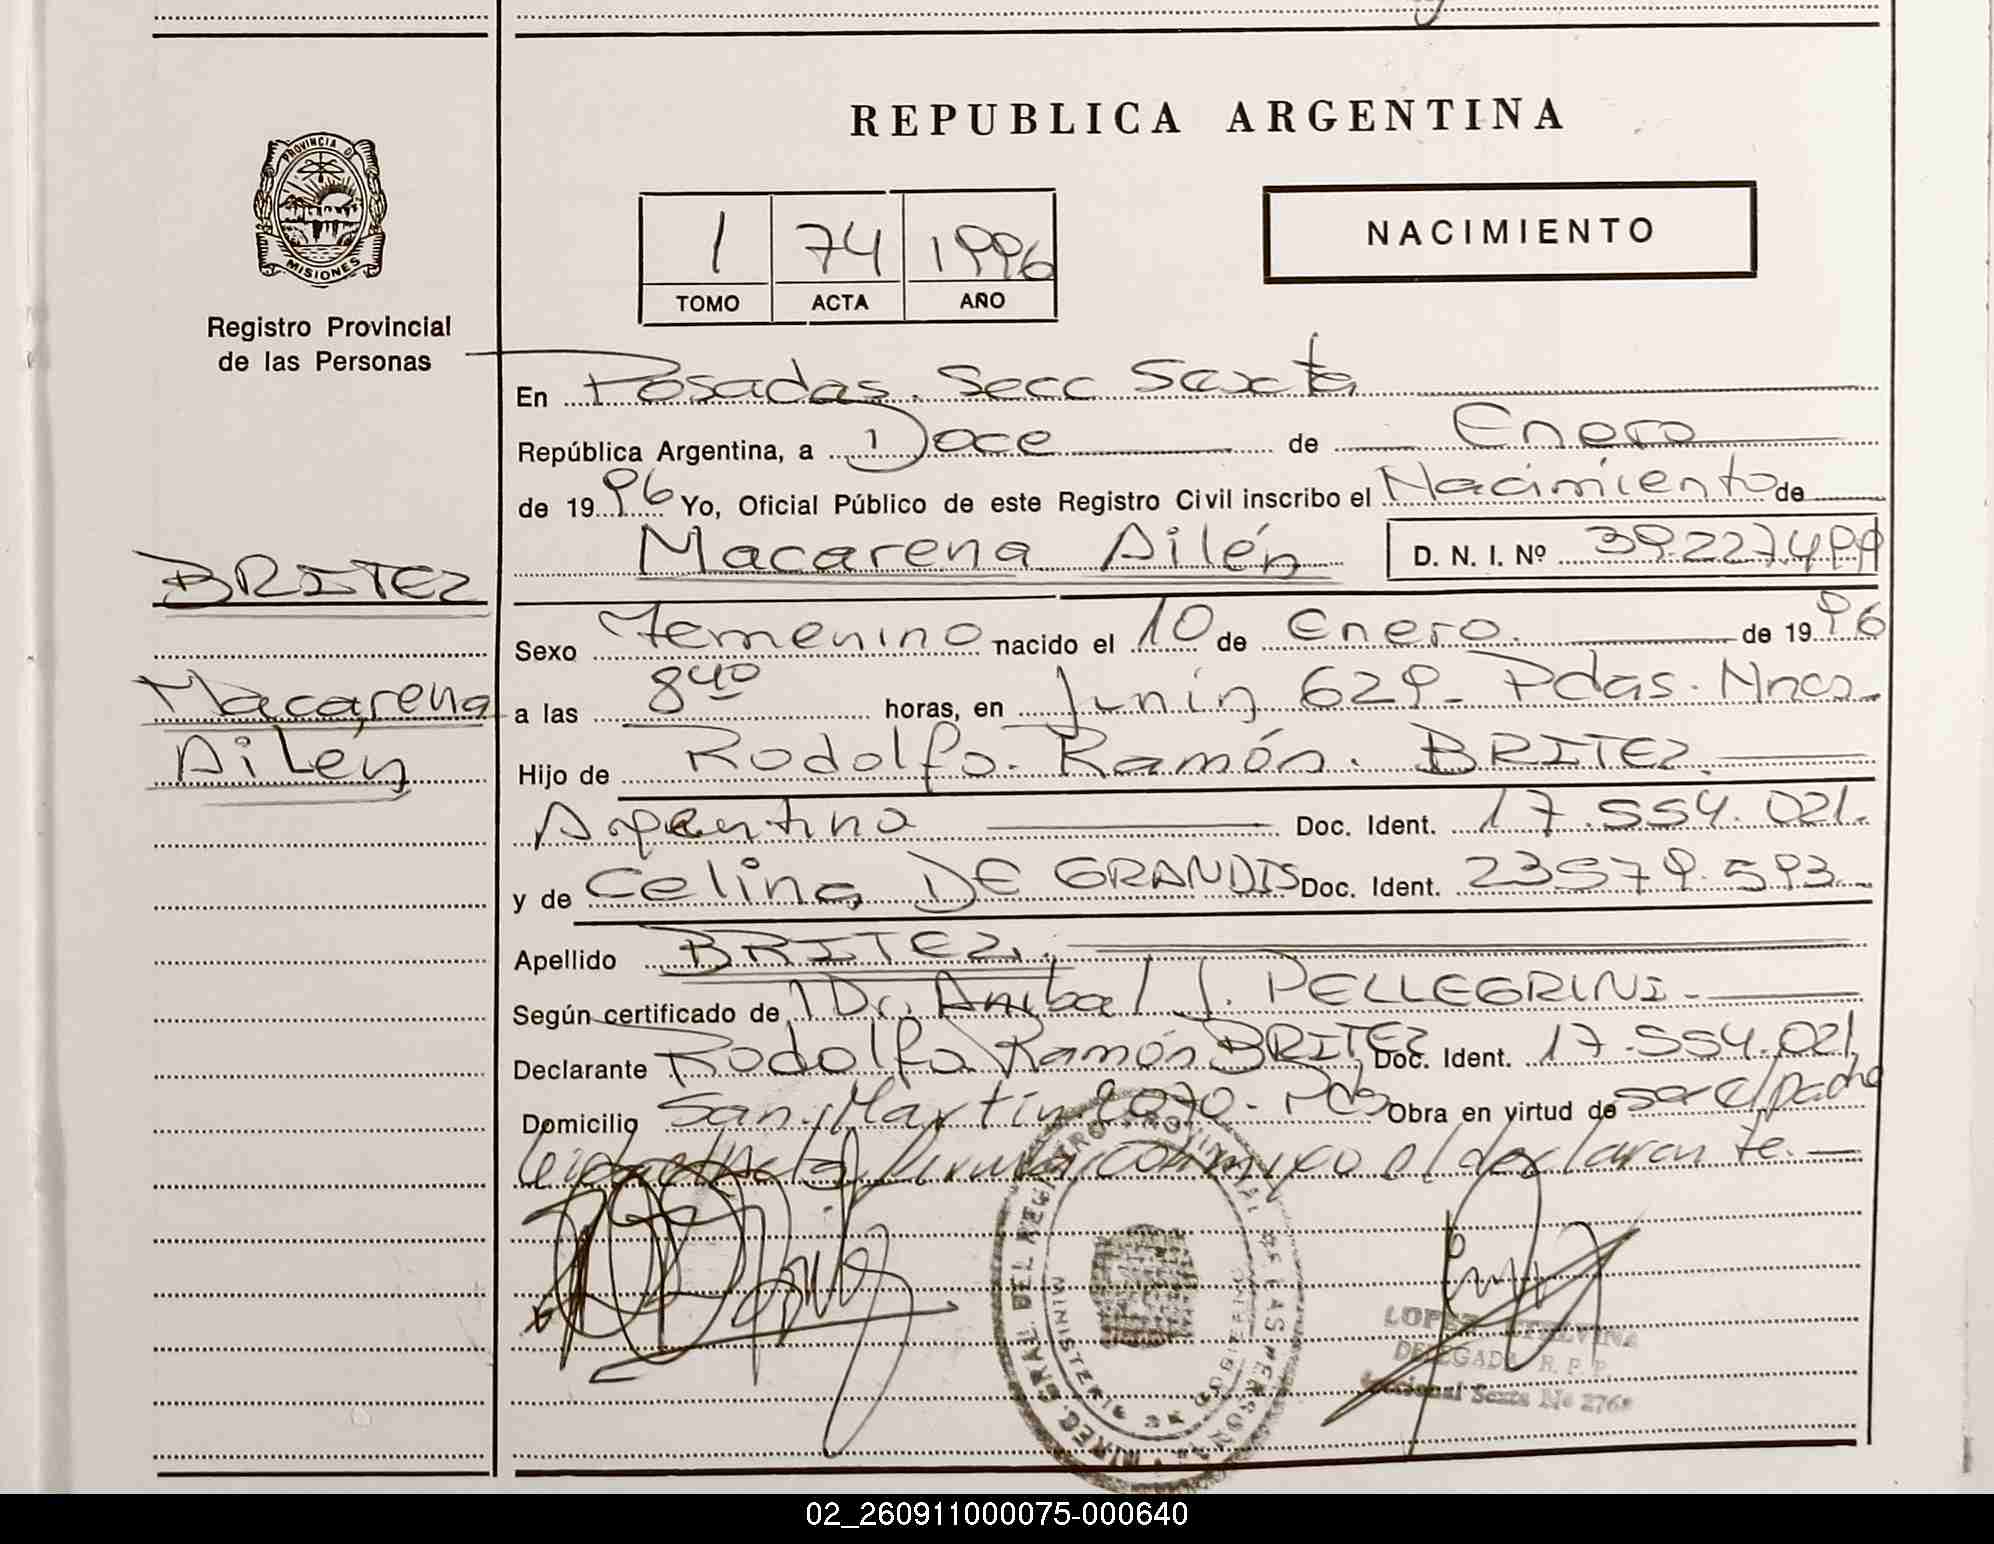 REPUBLICA ARGENTINA
PROVINCIA DE
MISIONES
Registro Provincial
de las Personas
1 74 1996
TOMO ACTA AÑO
NACIMIENTO
En Posadas. Secc Sexta
República Argentina, a Doce de Enero
de 1996 Yo, Oficial Público de este Registro Civil inscribo el Nacimiento de
Macarena Ailén D. N. I. Nº 39.227.499
BRITEZ
Macarena
Ailén
Sexo Femenino nacido el 10 de Enero. de 1996
a las 8 40 horas, en Junín 629- Pdas. Mnes
Hijo de Rodolfo. Ramón. BRITEZ.
Argentino Doc. Ident. 17.554.021.
y de Celina DE GRANDIS Doc. Ident. 23579.593
Apellido BRITEZ.
Según certificado de Dr. Anibal J. PELLEGRINI-
Declarante Rodolfo Ramón BRITEZ Doc. Ident. 17.554.021,
Domicilio San Martín 2070- Pdas Obra en virtud de ser el padre
Leída el acta firman conmigo el declarante.-
DIREC. GRAL. DEL REGISTRO PROVINCIAL DE LAS PERSONAS
MINISTERIO DE GOBIERNO
LOPEZ ETELVINA
DELEGADA R. P. P.
Seccional Sexta Nº 276
02_260911000075-000640